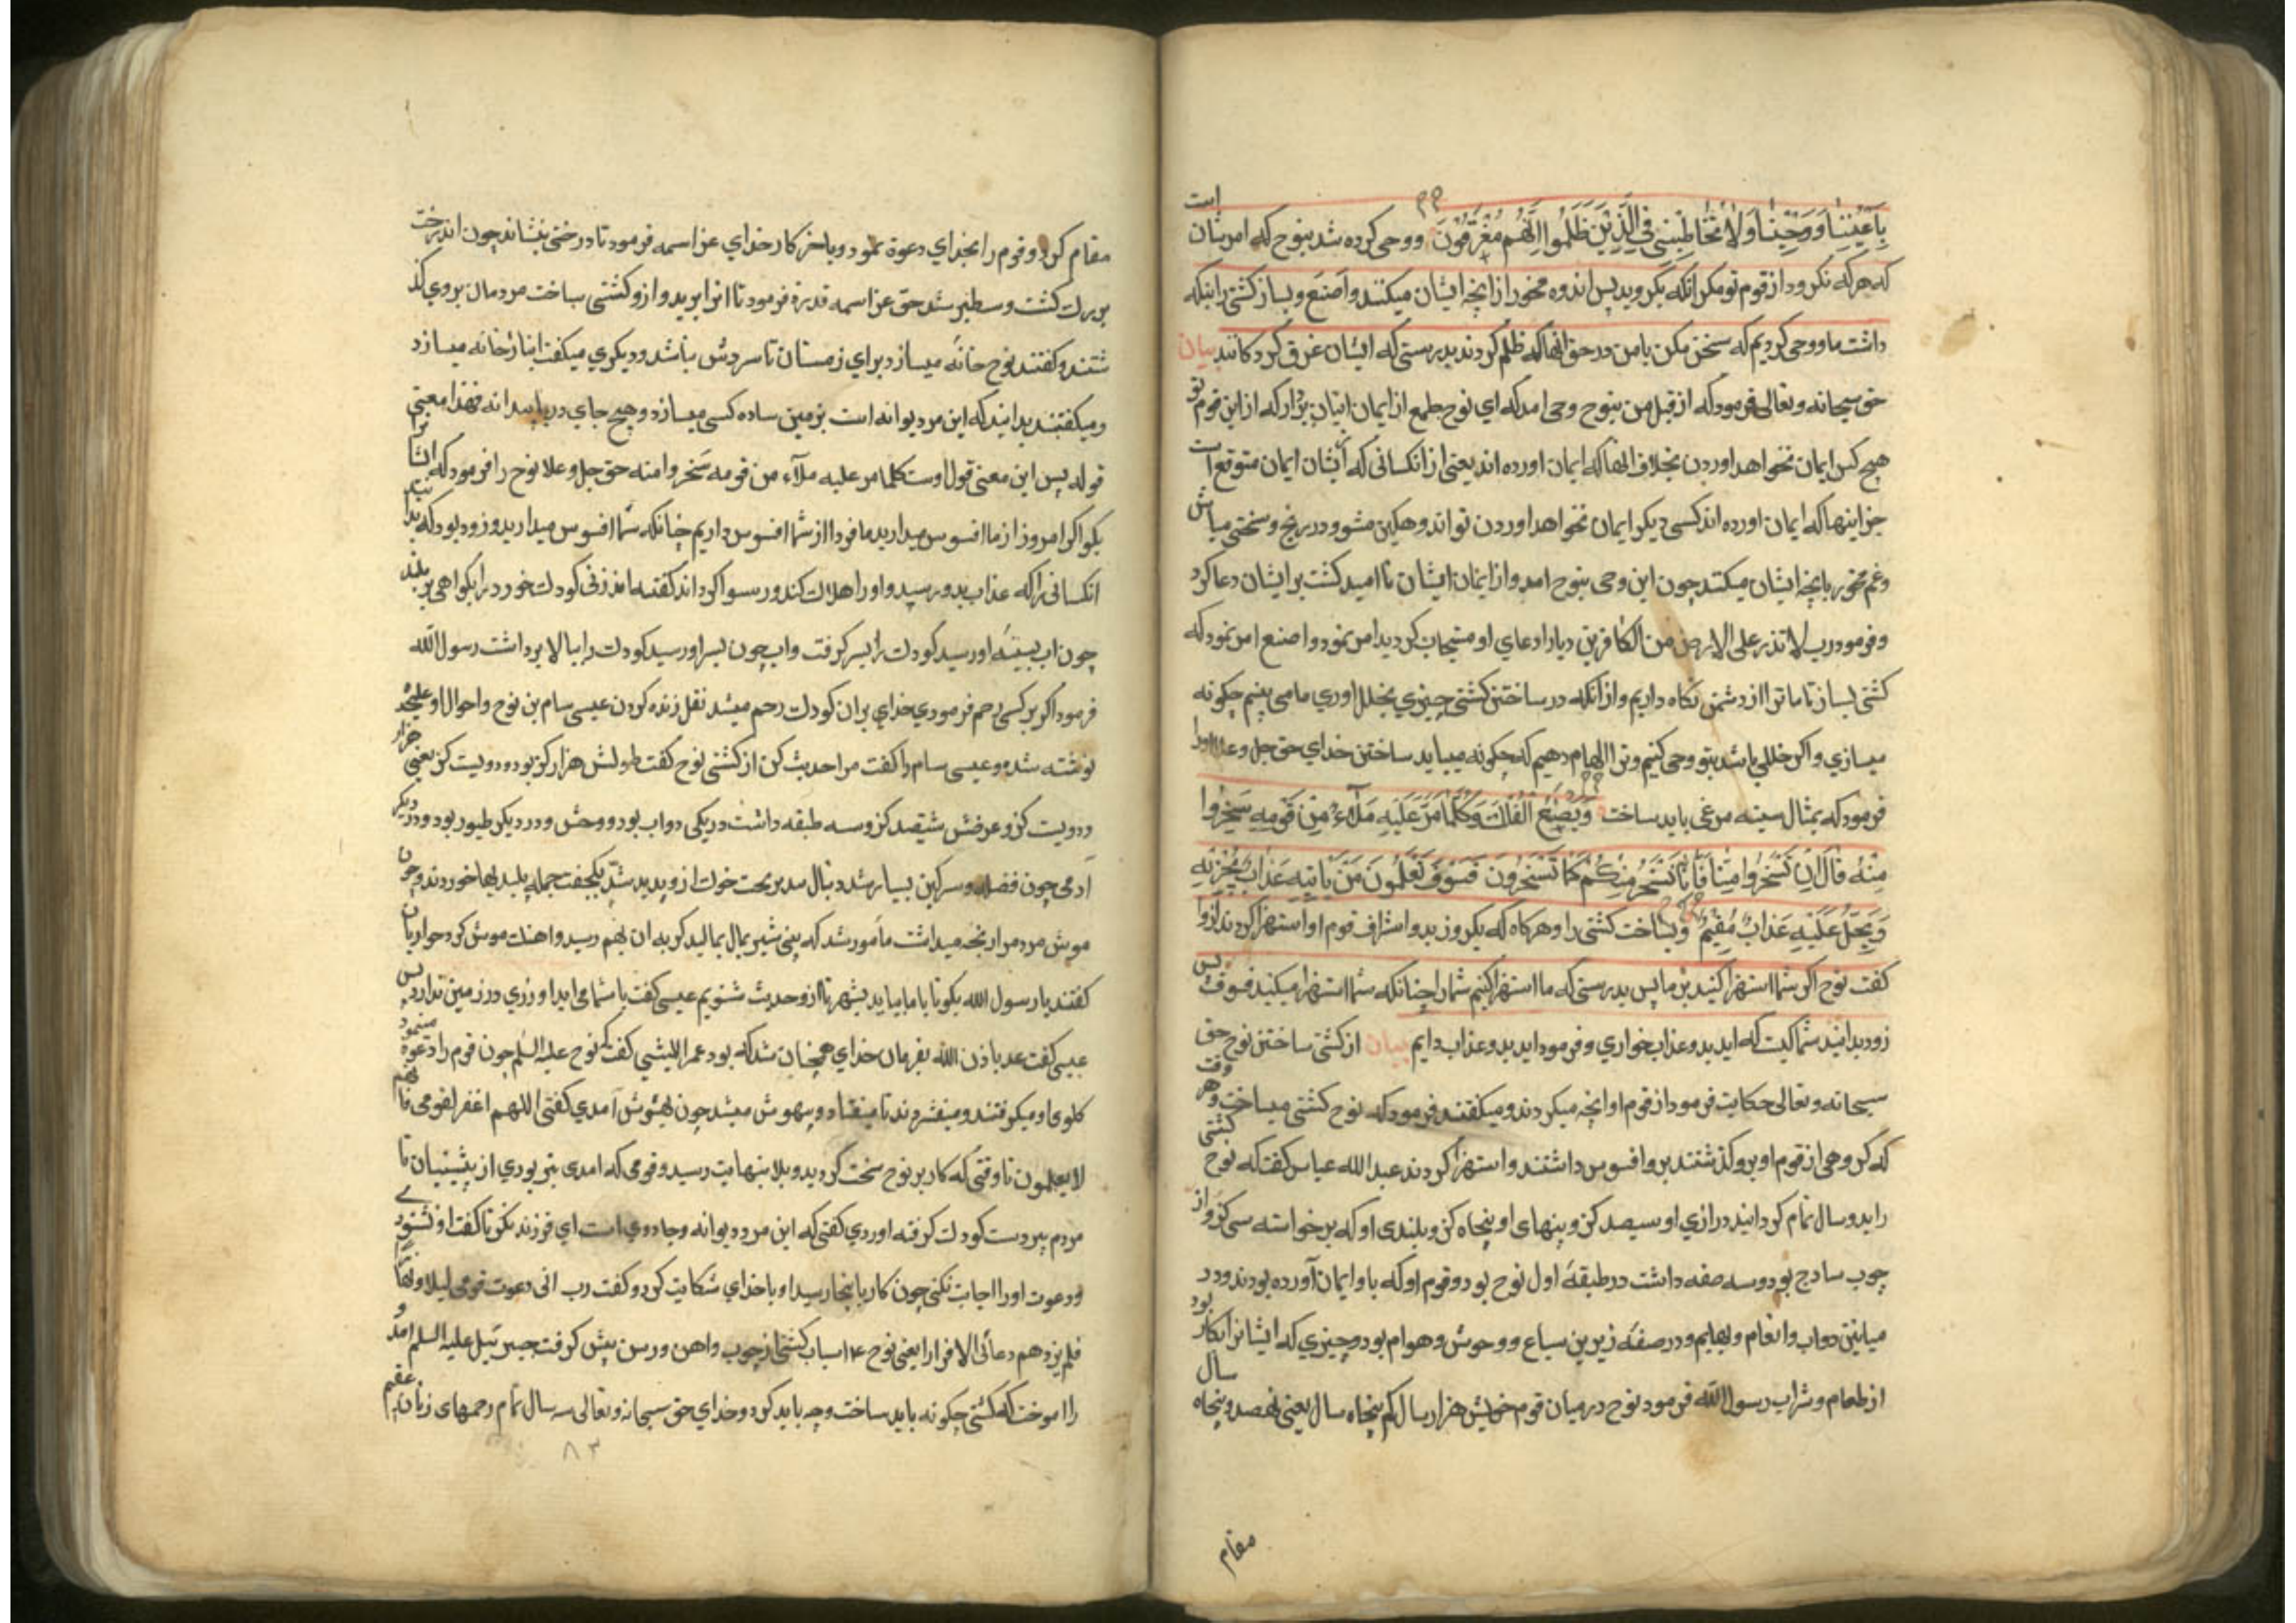 بِأَعْيُنِنَا وَوَحْيِنَا وَلَا تُخَاطِبْنِي فِي الَّذِينَ ظَلَمُوا إِنَّهُم مُّغْرَقُونَ ووحی کرده شد بنوح که امر شان است
که هرکه نکرود از قوم تو مکر انکه بکروید پس اندوه مخور از انچه ایشان میکنند واصنع و بساز کشتی را بنکه
داشت ما ووحی کردیم که سخن مکن با من در حق انها که ظلم کردند بدرستی که ایشان غرق کردکانند بیان
حق سبحانه وتعالی فرمود که از قبل من بنوح وحی امد که ای نوح طمع از ایمان ایشان بردار که از این قوم تو
هیچ کس ایمان نخواهد اوردن بخلاف انها که ایمان اورده اند یعنی از انکسانی که ایشان ایمان متوقع است
جز اینها که ایمان اورده اند کسی دیکر ایمان نخواهد اوردن نتواند و غمکین مشو و در رنج و سختی مباش
وغم مخور بانچه ایشان میکنند چون این وحی بنوح امد و از ایمان ایشان نا امید کشت بر ایشان دعا کرد
وفرمود رب لا تذر علی الارض من الکافرین دیارا دعای او مستجاب کردید امر نمود واصنع امر نمود که
کشتی بساز تا ما ترا از دشمن نکاه داریم و از انکه در ساختن کشتی چیزی بخلل اوری ما می بینیم چکونه
میسازی واکر خللی باشد بتو وحی کنیم وترا الهام دهیم که چکونه میباید ساختن خدای حق جل وعلا اورا
فرمود که بمثال سینه مرغی باید ساخت وَيَصْنَعُ الْفُلْكَ وَكُلَّمَا مَرَّ عَلَيْهِ مَلَأٌ مِّن قَوْمِهِ سَخِرُوا
مِنْهُ قَالَ إِن تَسْخَرُوا مِنَّا فَإِنَّا نَسْخَرُ مِنكُمْ كَمَا تَسْخَرُونَ فَسَوْفَ تَعْلَمُونَ مَن يَأْتِيهِ عَذَابٌ يُخْزِيهِ
وَيَحِلُّ عَلَيْهِ عَذَابٌ مُّقِيمٌ ومیساخت کشتی را وهرکاه که بکروز بدو اشراف قوم او استهزا کردند ازو
کفت نوح اکر شما استهزا کنید بر ما پس بدرستی که ما استهزا کنیم شما را چنانکه شما استهزا میکنید فسوف پس
زود بدانید شما کیست که اید بدو عذاب خواری وفرمود اید بدو عذاب دایم بیان از کشتی ساختن نوح حق
سبحانه وتعالی حکایت فرمود از قوم او انچه میکردند ومیکفتند فرمود که نوح کشتی میساخت وهر وقت
که کروهی از قوم او برو کذشتند برو افسوس داشتند واستهزا کردند عبد الله عباس کفت که نوح کشتی
را بدو سال تمام کردانید درازی او سیصد کز و پنهای او پنجاه کز و بلندی او که برخواسته سی کز و از
چوب سادج بود وسه صفه داشت در طبقه اول نوح بود وقوم او که باو ایمان آورده بودند ودر
میانین دواب وانعام وبهایم ودر صفه زیرین سباع ووحوش وهوام بود وچیزی که ایشانرا بکار بود
از طعام وشراب رسول الله فرمود نوح در میان قوم خویش هزار سال کم پنجاه سال یعنی نهصد وپنجاه سال
مقام
مقام کرد وقوم را بخدای دعوة نمود وباخر کار خدای عز اسمه فرمود تا درختی بنشاند چون اندرخت
بزرک کشت وسطبر شد حق عز اسمه قدرة فرمود تا انرا برید و ازو کشتی ساخت مردمان بروی کذ
شتند وکفتند نوح خانه میسازد برای زمستان تا سردش نباشد ودیکری میکفت انبارخانه میسازد
ومیکفتند بدانید که این مرد دیوانه است بزمین ساده کسی میسازد وهیچ جای دریا پیدا نه فهذا معنی
قوله پس این معنی قول اوست کلما مر علیه ملاء من قومه سخروا منه حق جل وعلا نوح را فرمود که
بکو اکر امروز از ما افسوس میدارید ما فردا از شما افسوس داریم چنانکه شما افسوس میدارید وزود بود که بدا
انکسانی را که عذاب بدو رسید و او را هلاک کند ورسوا کرداند کفته اند زنی کودک خود را بکوهی بر بلند
چون اب بسینه او رسید کودک را بسر کرفت واب چون بسر او رسید کودک را ببالا برداشت رسول الله
فرمود اکر بر کسی رحم فرمودی خدای بران کودک رحم میشد نقل زنده کردن عیسی سام بن نوح واحوال او
نوشته شد وعیسی سام را کفت مرا حدیث کن از کشتی نوح کفت طولش هزار کز بود ودویست کز یعنی هزار
ودویست کز وعرضش ششصد کز وسه طبقه داشت در یکی دواب بود ووحش ودر دیکر طیور بود ودر دیکر
آدمی چون فضله وسرکین بسیار شد دنبال خوک ازو پدید شد یکجفت جمله پلیدیها خوردند وچون
موش مردم را رنجه میداشت مامور شد که پنی شیر بمال بمالید کربه ان بهم رسید واهنک موش کرد حواریان
کفتند یا رسول الله بکو تا با ما بیاید بشهر تا ازو حدیث شنویم عیسی کفت با شما می اید او روزی در زمین ندارد پس
عیسی کفت عد باذن الله بفرمان خدای همچنان شد که بود عمر اللیثی کفت که نوح علیه السلم چون قوم را دعوة مینمود
کلوی او میکرفتند ومیفشردند تا میفتاد وبیهوش میشد چون بهوش آمدی کفتی اللهم اغفر لقومی فانهم
لا یعلمون تا وقتی که کار بر نوح سخت کردید وبلا بنهایت رسید وقومی که امدی بتر بودی از پیشینیان تا
مردم پیر دست کودک کرفته اوردی کفتی که این مرد دیوانه وجادوی است ای فرزند نکر تا کفت او نشنوی
ودعوت او را اجابت نکنی چون کار باینجا رسید او با خدای شکایت کرد وکفت رب انی دعوت قومی لیلا ونهارا
فلم یزدهم دعائی الا فرارا یعنی نوح ع اسباب کشتی از چوب واهن ورسن پیش کرفت جبرئیل علیه السلم امد و
را اموخت که کشتی چکونه باید ساخت وچه باید کرد وخدای حق سبحانه وتعالی سه سال تمام رحمهای زنان عقیم
۸۳